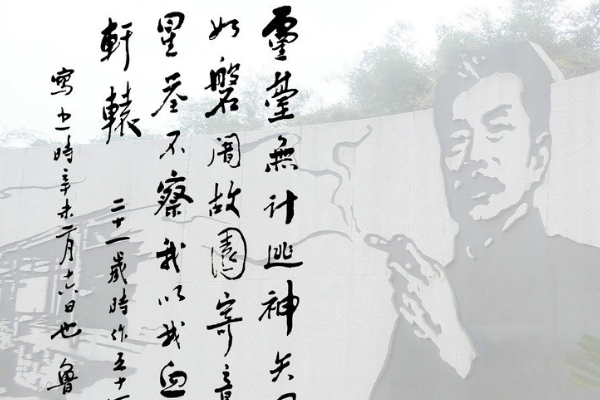 靈臺無計逃神矢
如磐闇故園寄意
星荃不察我以我血
軒轅 二十一歲時作五十
寫之時辛未二月十六日也 魯